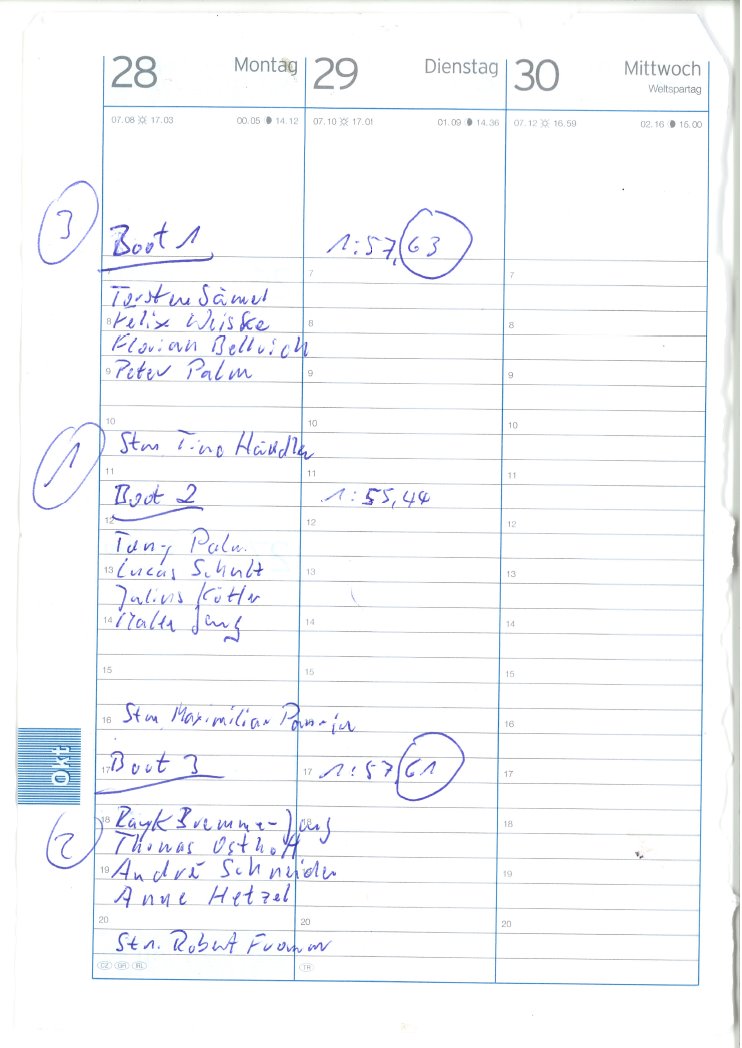 28 Montag 29 Dienstag 30 Mittwoch
Weltspartag
07.08 17.03 00.05 14.12 07.10 17.01 01.09 14.36 07.12 16.59 02.16 15.00
3
Boot 1 1:57,63
7 7
Torsten Sämel
8 Felix Weiske 8 8
Florian Bellrich
9 Peter Palm 9 9
10 10 10
Stm Tino Händler
1
11 11 11
Boot 2 1:55,44
12 12 12
Tony Palm
13 Lucas Schult 13 13
Julius Kötter
14 Malte Jang 14 14
15 15 15
16 Stm Maximilian 16
Okt
17 Boot 3 17 1:57,61 17
18 Rayk Bremme-Jang 18 18
2
Thomas Osthoff
19 André Schneider 19
Anne Hetzel
20 20 20
Stm. Robert Frommer
CZ GR RL TR